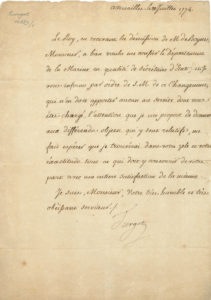 a Versailles, Juillet 1774.
Le Roy, en recevant la démission de M. de Boynes,
Monsieur, a bien voulu me confier le département
de la Marine en qualité de Secrétaire d'Etat
vous informe par ordre de S.M. de ce changement,
qui n'en doit apporter aucun au service dont vous
êtes chargé. l'attention que je me propose de donner
aux différends objets qui y sont relatifs, me
fait espérer que je trouverai dans votre zèle et votre
exactitude tout ce qui doit y concourir de votre
part avec une entière satisfaction de la mienne.
Je suis, Monsieur, Votre très humble et très
obéissant serviteur.
Turgot